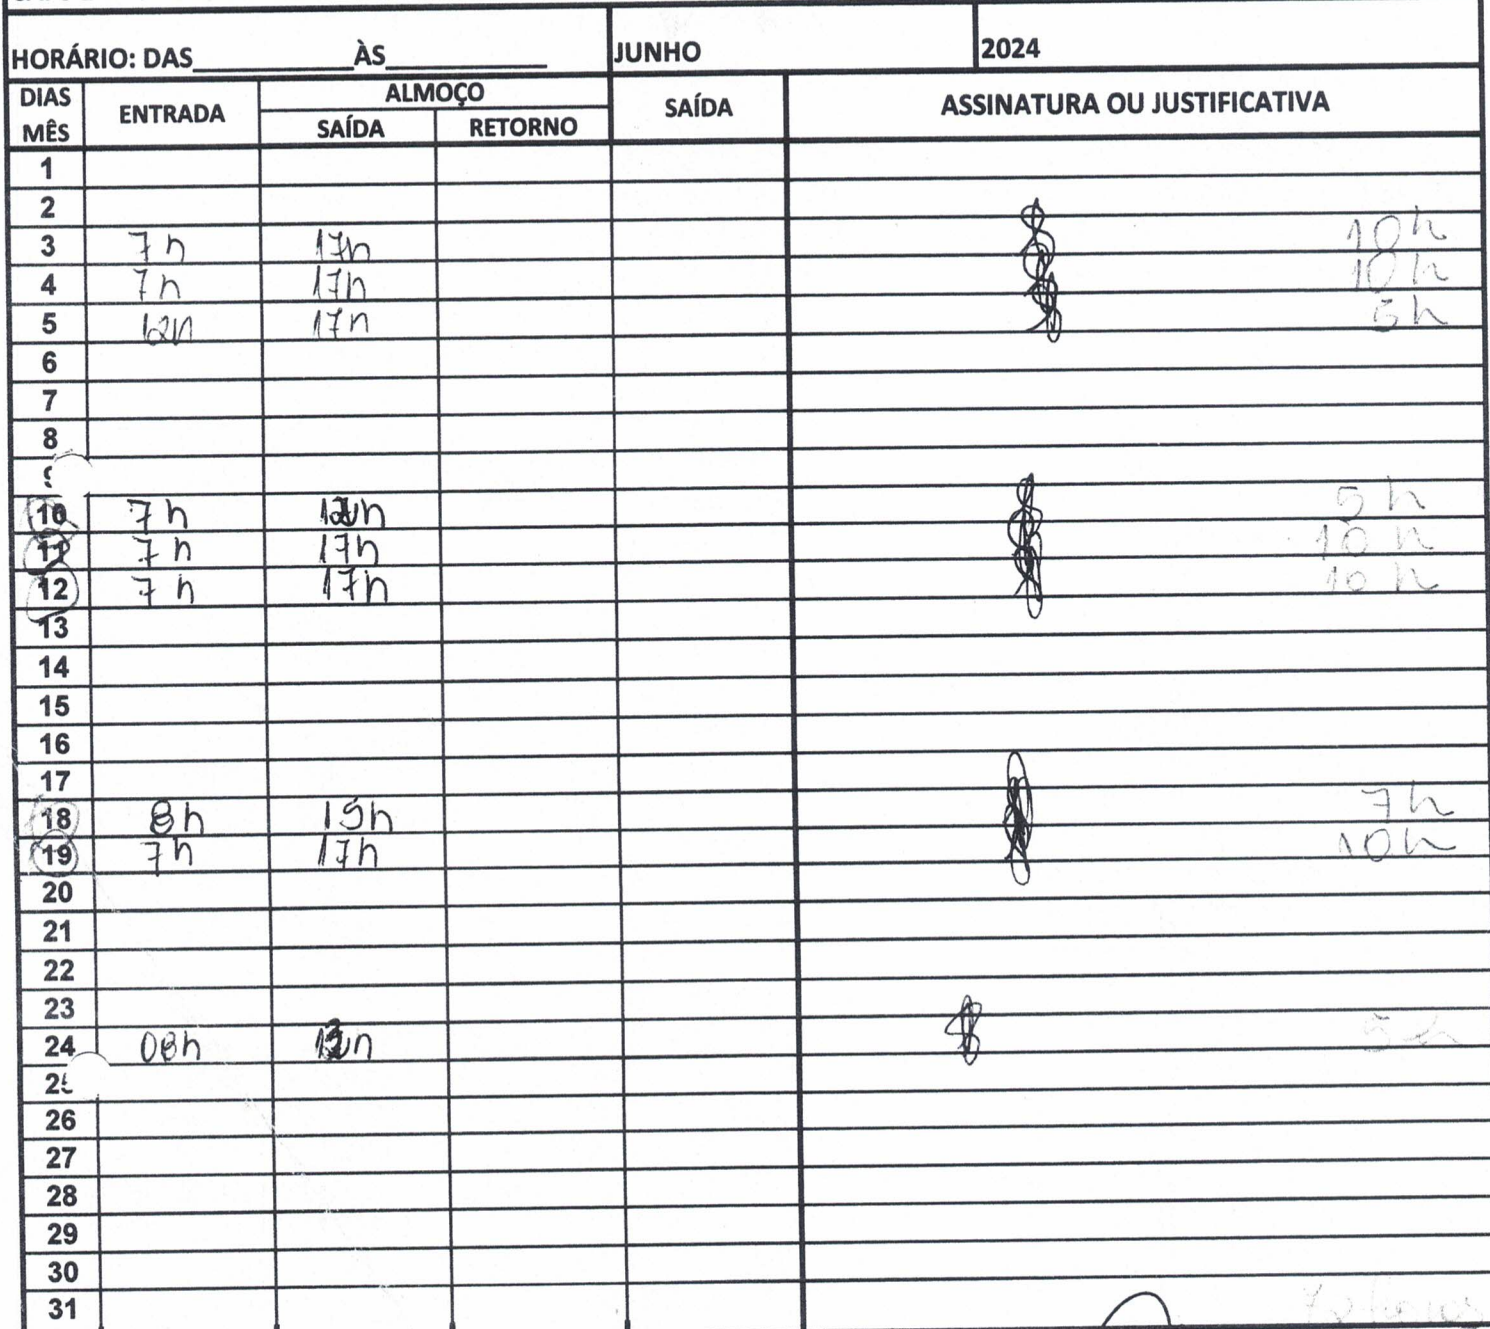 HORÁRIO: DAS____________ÀS____________ JUNHO 2024
DIAS MÊS ENTRADA ALMOÇO SAÍDA ASSINATURA OU JUSTIFICATIVA
SAÍDA RETORNO
1
2
3 7h 17h 10h
4 7h 17h 10h
5 12h 17h 5h
6
7
8
9
10 7h 12h 5h
11 7h 17h 10h
12 7h 17h 10h
13
14
15
16
17
18 8h 15h 7h
19 7h 17h 10h
20
21
22
23
24 08h 5h
25
26
27
28
29
30
31